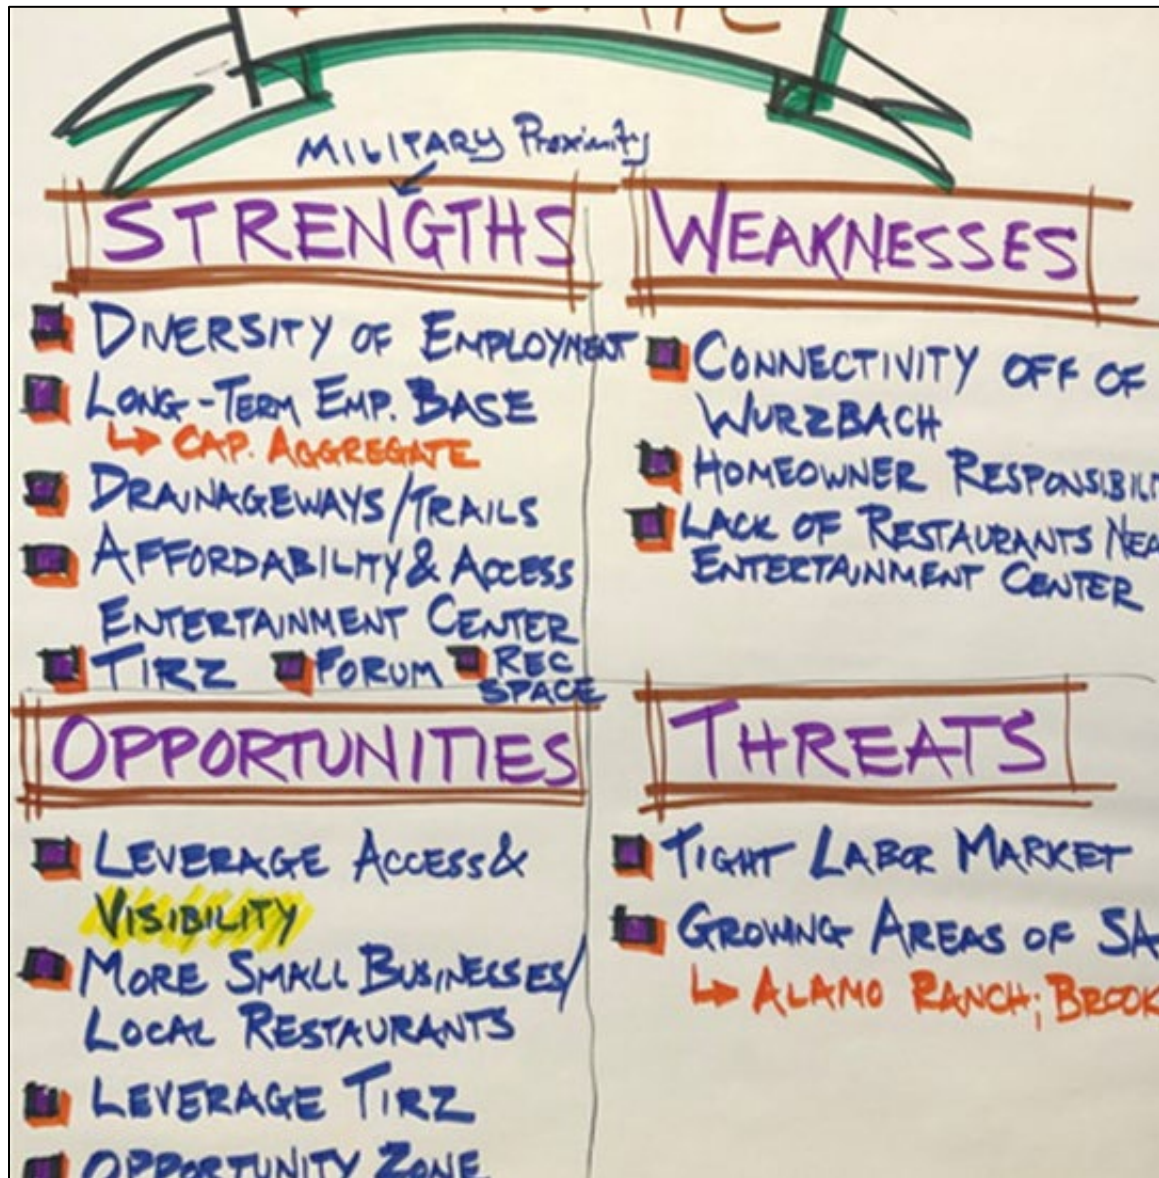 MILITARY Proximity
STRENGTHS
DIVERSITY OF EMPLOYMENT
LONG-TERM EMP. BASE
↳ CAP. AGGREGATE
DRAINAGEWAYS/TRAILS
AFFORDABILITY & ACCESS
ENTERTAINMENT CENTER
TIRZ FORUM REC
SPACE
WEAKNESSES
CONNECTIVITY OFF OF
WURZBACH
HOMEOWNER RESPONSIBILIT
LACK OF RESTAURANTS NEA
ENTERTAINMENT CENTER
OPPORTUNITIES
LEVERAGE ACCESS &
VISIBILITY
MORE SMALL BUSINESSES/
LOCAL RESTAURANTS
LEVERAGE TIRZ
OPPORTUNITY ZONE
THREATS
TIGHT LABOR MARKET
GROWING AREAS OF SA
↳ ALAMO RANCH; BROOK